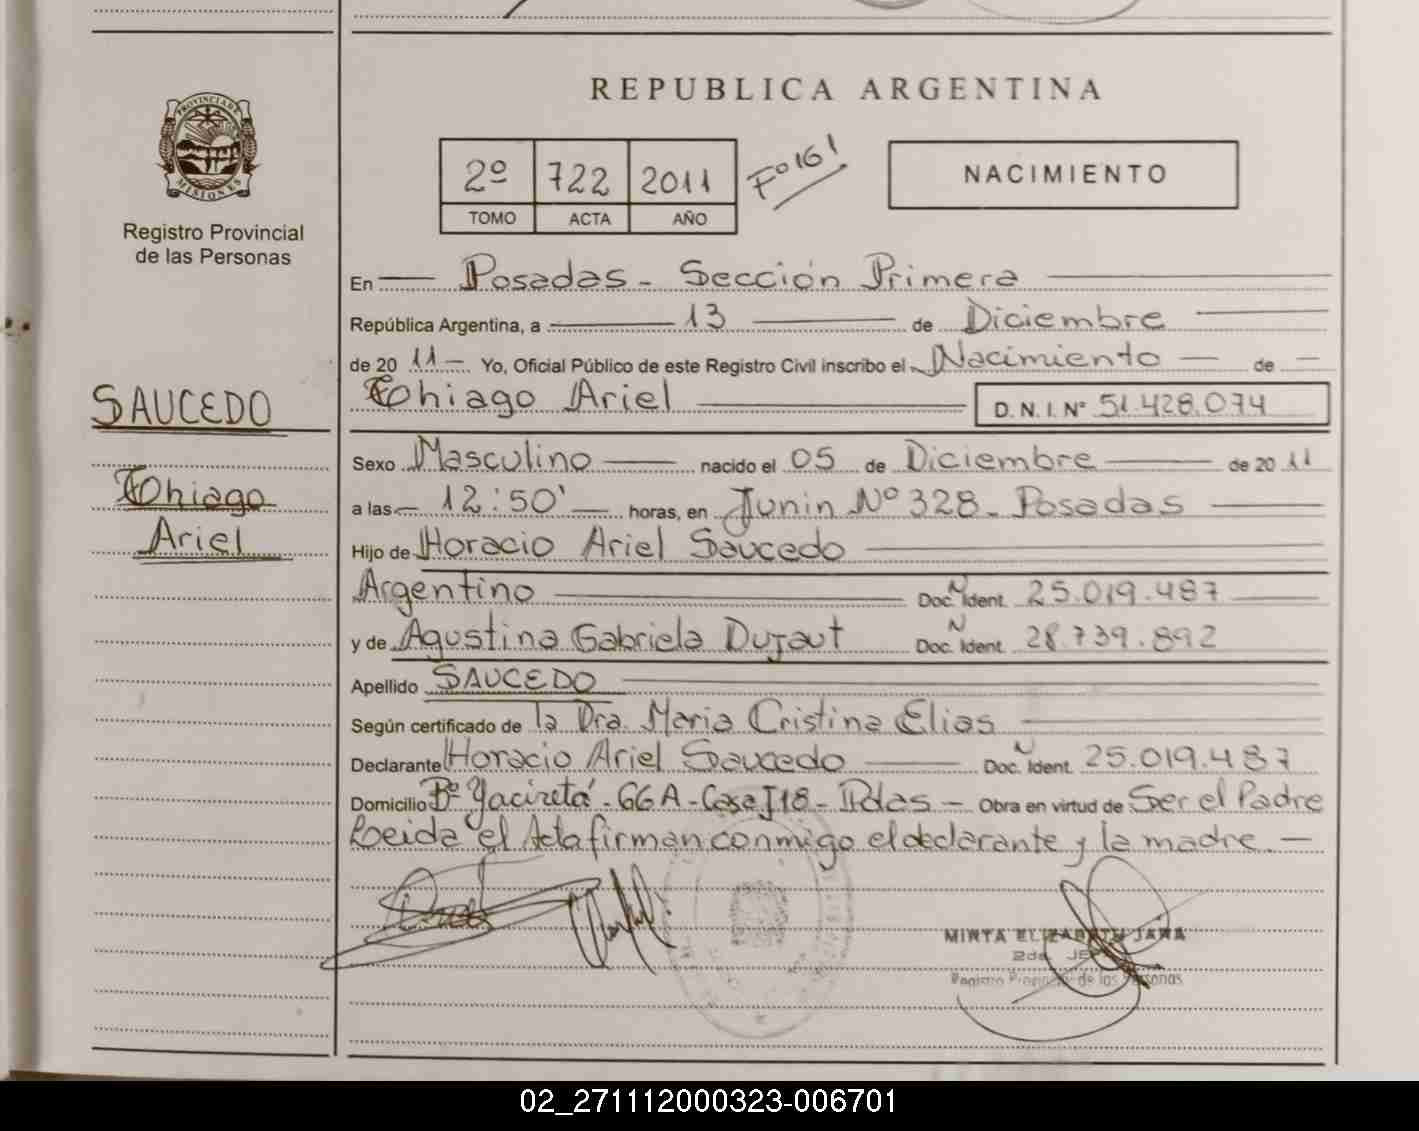 REPUBLICA ARGENTINA
PROVINCIA DE
MISIONES
Registro Provincial
de las Personas
2º 722 2011 Fº161
TOMO ACTA AÑO
NACIMIENTO
En Posadas - Sección Primera
República Argentina, a 13 de Diciembre
de 20 11 - Yo, Oficial Público de este Registro Civil inscribo el Nacimiento - de -
Thiago Ariel D.N.I. Nº 51.428.074
SAUCEDO
Thiago
Ariel
Sexo Masculino nacido el 05 de Diciembre de 20 11
a las 12:50' horas, en Junin Nº 328 - Posadas
Hijo de Horacio Ariel Saucedo
Argentino Doc. N Ident. 25.019.487
y de Agustina Gabriela Dujaut Doc. N Ident. 28.739.892
Apellido SAUCEDO
Según certificado de la Dra. Maria Cristina Elias
Declarante Horacio Ariel Saucedo Doc. N Ident. 25.019.487
Domicilio Bº Yacireta - 66A - Casa J18 - Pdas - Obra en virtud de Ser el Padre
Leida el Acta firman conmigo el declarante y la madre. -
MIRTA ELIZABETH JARA
2da. JEFE
Registro Provincial de las Personas
02_271112000323-006701